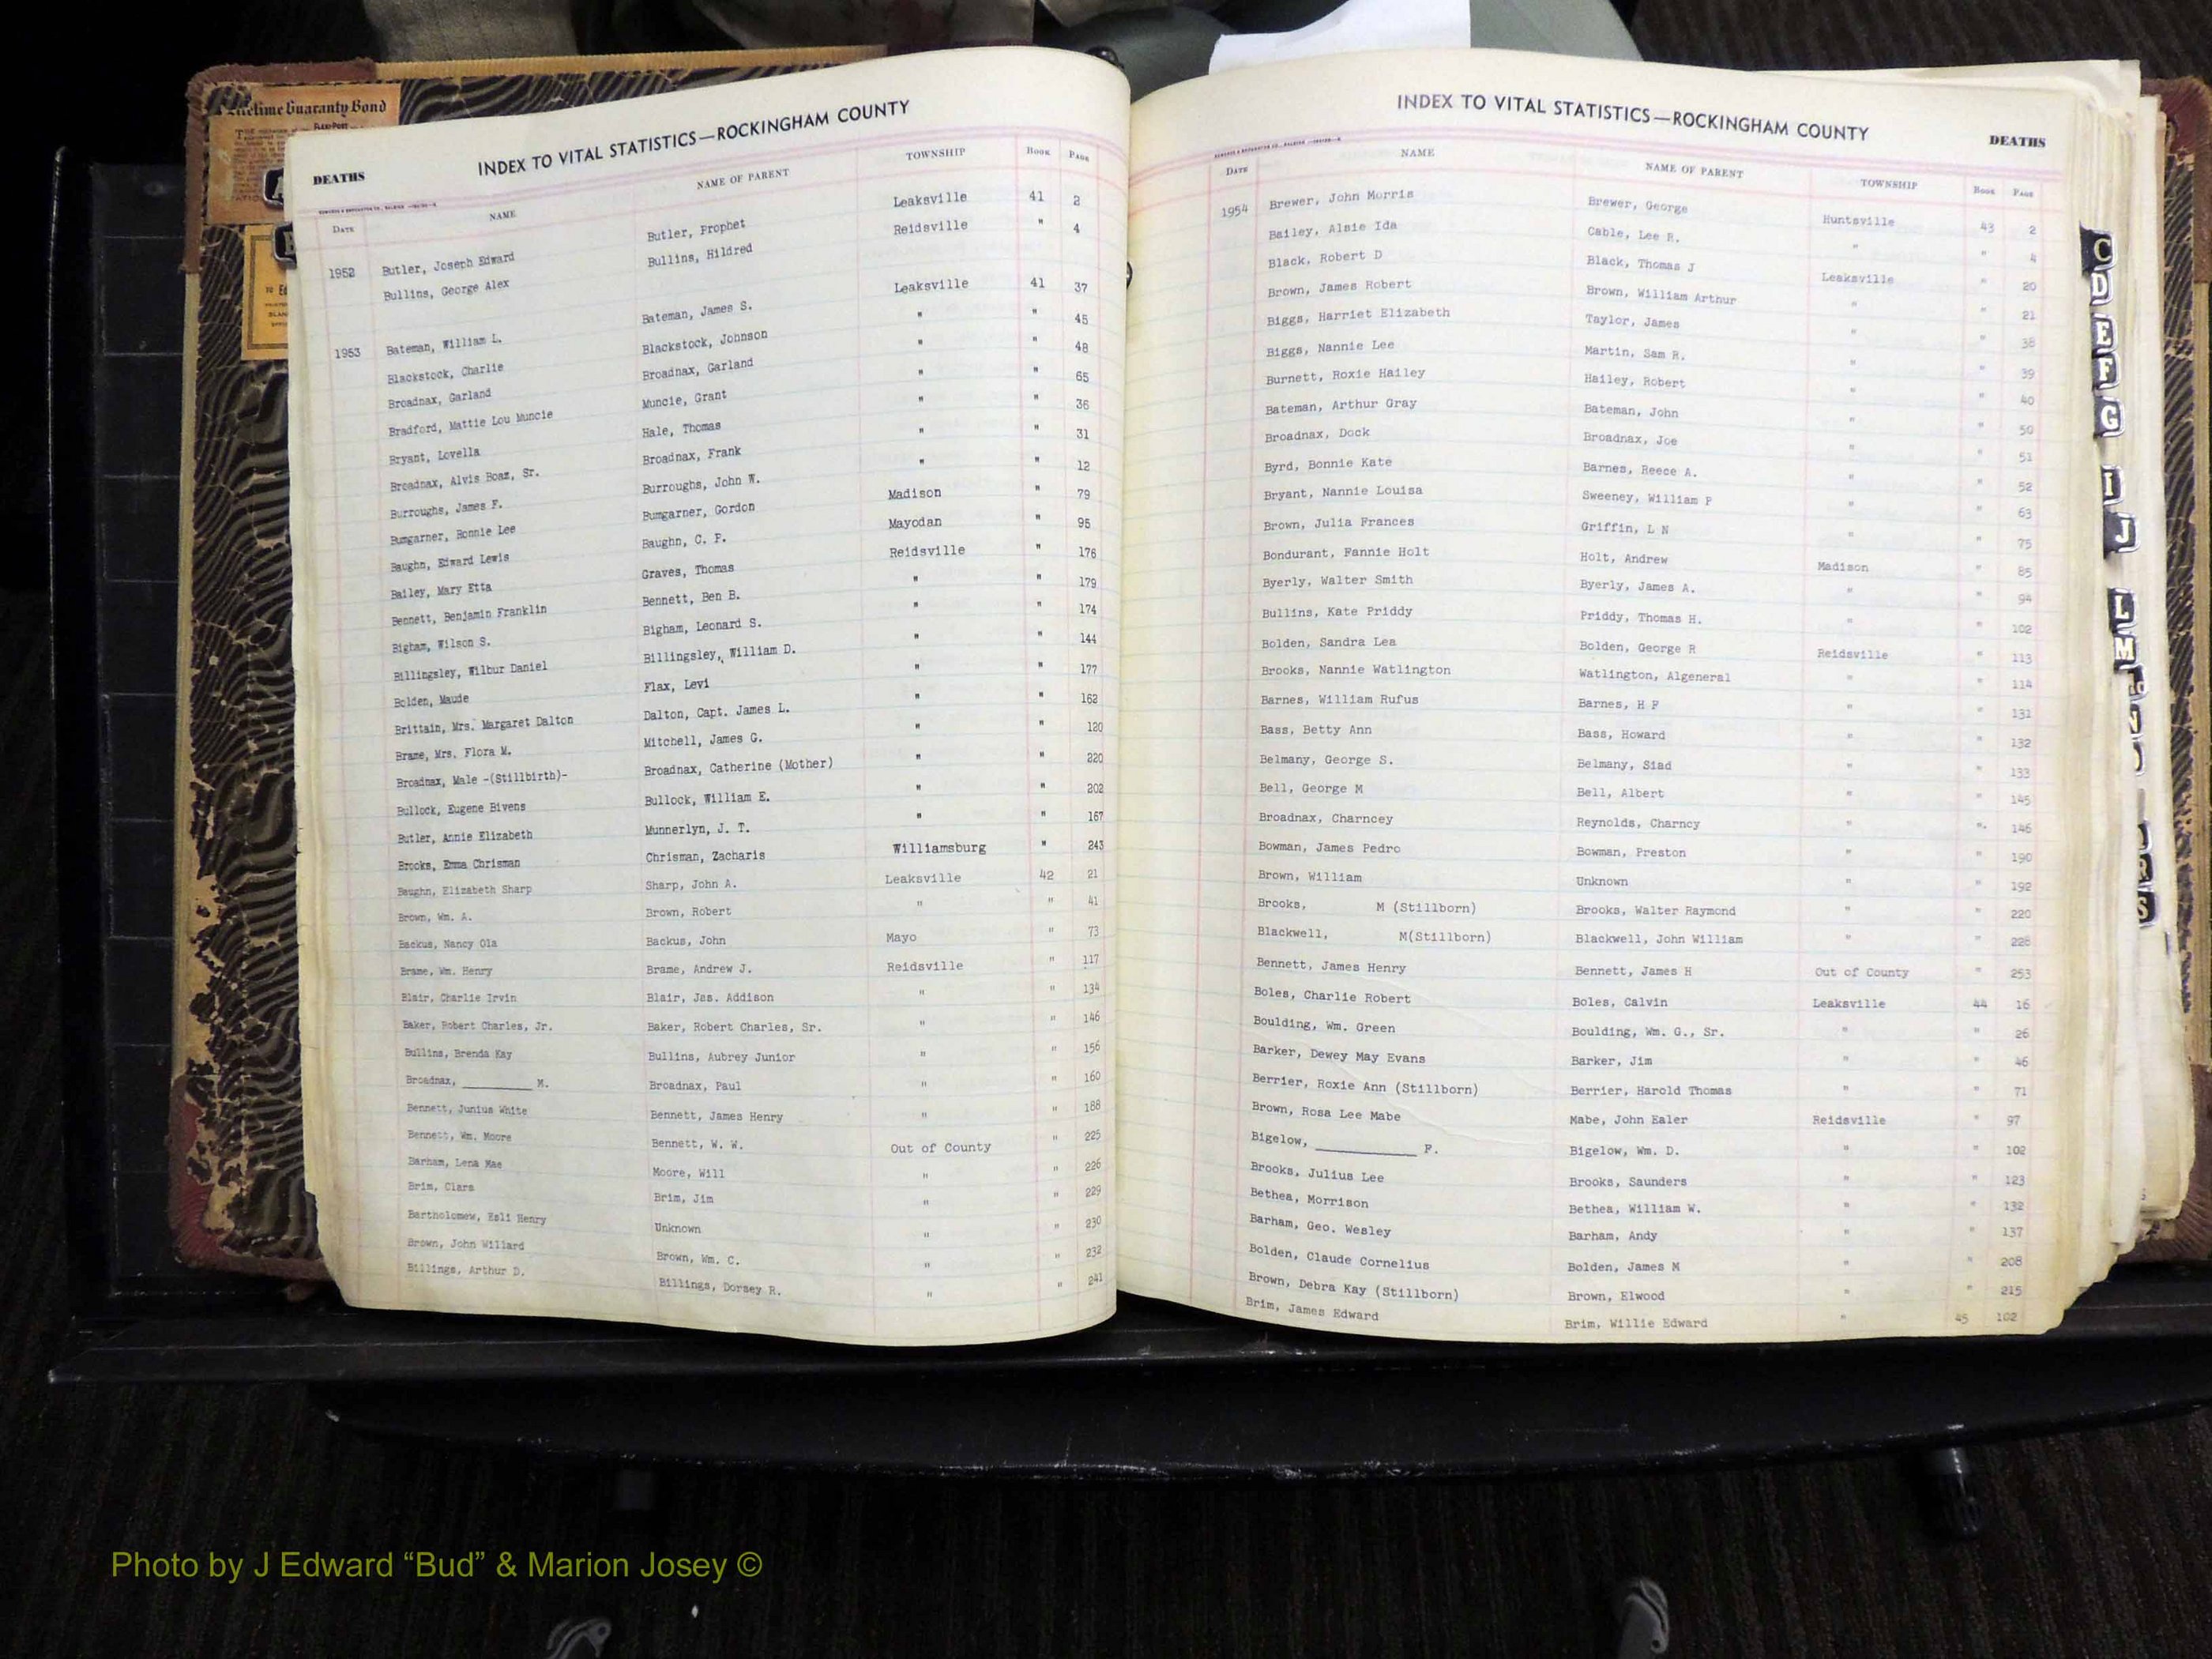 Lifetime Guaranty Bond
INDEX TO VITAL STATISTICS—ROCKINGHAM COUNTY
DEATHS
DATE NAME NAME OF PARENT TOWNSHIP BOOK PAGE
1952 Butler, Joseph Edward Butler, Prophet Leaksville 41 2
Bullins, George Alex Bullins, Hildred Reidsville " 4
1953 Bateman, William L. Bateman, James S. Leaksville 41 37
Blackstock, Charlie Blackstock, Johnson " " 45
Broadnax, Garland Broadnax, Garland " " 48
Bradford, Mattie Lou Muncie Muncie, Grant " " 65
Bryant, Lovella Hale, Thomas " " 36
Broadnax, Alvis Boaz, Sr. Broadnax, Frank " " 31
Burroughs, James F. Burroughs, John W. " " 12
Bumgarner, Ronnie Lee Bumgarner, Gordon Madison " 79
Baughn, Edward Lewis Baughn, C. P. Mayodan " 95
Bailey, Mary Etta Graves, Thomas Reidsville " 176
Bennett, Benjamin Franklin Bennett, Ben B. " " 179
Bigham, Wilson S. Bigham, Leonard S. " " 174
Billingsley, Wilbur Daniel Billingsley, William D. " " 144
Bolden, Maude Flax, Levi " " 177
Brittain, Mrs. Margaret Dalton Dalton, Capt. James L. " " 162
Brame, Mrs. Flora M. Mitchell, James G. " " 120
Broadnax, Male -(Stillbirth)- Broadnax, Catherine (Mother) " " 220
Bullock, Eugene Bivens Bullock, William E. " " 202
Butler, Annie Elizabeth Munnerlyn, J. T. " " 167
Brooks, Emma Chrisman Chrisman, Zacharis Williamsburg " 243
Baughn, Elizabeth Sharp Sharp, John A. Leaksville 42 21
Brown, Wm. A. Brown, Robert " " 41
Backus, Nancy Ola Backus, John Mayo " 73
Brame, Wm. Henry Brame, Andrew J. Reidsville " 117
Blair, Charlie Irvin Blair, Jas. Addison " " 134
Baker, Robert Charles, Jr. Baker, Robert Charles, Sr. " " 146
Bullins, Brenda Kay Bullins, Aubrey Junior " " 156
Broadnax, __________ M. Broadnax, Paul " " 160
Bennett, Junius White Bennett, James Henry " " 188
Bennett, Wm. Moore Bennett, W. W. Out of County " 225
Barham, Lena Mae Moore, Will " " 226
Brim, Clara Brim, Jim " " 229
Bartholomew, Esli Henry Unknown " " 230
Brown, John Willard Brown, Wm. C. " " 232
Billings, Arthur D. Billings, Dorsey R. " " 241
INDEX TO VITAL STATISTICS—ROCKINGHAM COUNTY
DEATHS
DATE NAME NAME OF PARENT TOWNSHIP BOOK PAGE
1954 Brewer, John Morris Brewer, George Huntsville 43 2
Bailey, Alsie Ida Cable, Lee R. " " 4
Black, Robert D Black, Thomas J Leaksville " 20
Brown, James Robert Brown, William Arthur " " 21
Biggs, Harriet Elizabeth Taylor, James " " 38
Biggs, Nannie Lee Martin, Sam R. " " 39
Burnett, Roxie Hailey Hailey, Robert " " 40
Bateman, Arthur Gray Bateman, John " " 50
Broadnax, Dock Broadnax, Joe " " 51
Byrd, Bonnie Kate Barnes, Reece A. " " 52
Bryant, Nannie Louisa Sweeney, William P " " 63
Brown, Julia Frances Griffin, L N " " 75
Bondurant, Fannie Holt Holt, Andrew Madison " 85
Byerly, Walter Smith Byerly, James A. " " 94
Bullins, Kate Priddy Priddy, Thomas H. " " 102
Bolden, Sandra Lea Bolden, George R Reidsville " 113
Brooks, Nannie Watlington Watlington, Algeneral " " 114
Barnes, William Rufus Barnes, H F " " 131
Bass, Betty Ann Bass, Howard " " 132
Belmany, George S. Belmany, Siad " " 133
Bell, George M Bell, Albert " " 145
Broadnax, Charncey Reynolds, Charncy " ". 146
Bowman, James Pedro Bowman, Preston " " 190
Brown, William Unknown " " 192
Brooks, M (Stillborn) Brooks, Walter Raymond " " 220
Blackwell, M(Stillborn) Blackwell, John William " " 228
Bennett, James Henry Bennett, James H Out of County " 253
Boles, Charlie Robert Boles, Calvin Leaksville 44 16
Boulding, Wm. Green Boulding, Wm. G., Sr. " " 26
Barker, Dewey May Evans Barker, Jim " " 46
Berrier, Roxie Ann (Stillborn) Berrier, Harold Thomas " " 71
Brown, Rosa Lee Mabe Mabe, John Ealer Reidsville " 97
Bigelow, __________ F. Bigelow, Wm. D. " " 102
Brooks, Julius Lee Brooks, Saunders " " 123
Bethea, Morrison Bethea, William W. " " 132
Barham, Geo. Wesley Barham, Andy " " 137
Bolden, Claude Cornelius Bolden, James M " " 208
Brown, Debra Kay (Stillborn) Brown, Elwood " " 215
Brim, James Edward Brim, Willie Edward " 45 102
C
D
E
F
G
I
J
L
M
S
Photo by J Edward “Bud” & Marion Josey ©